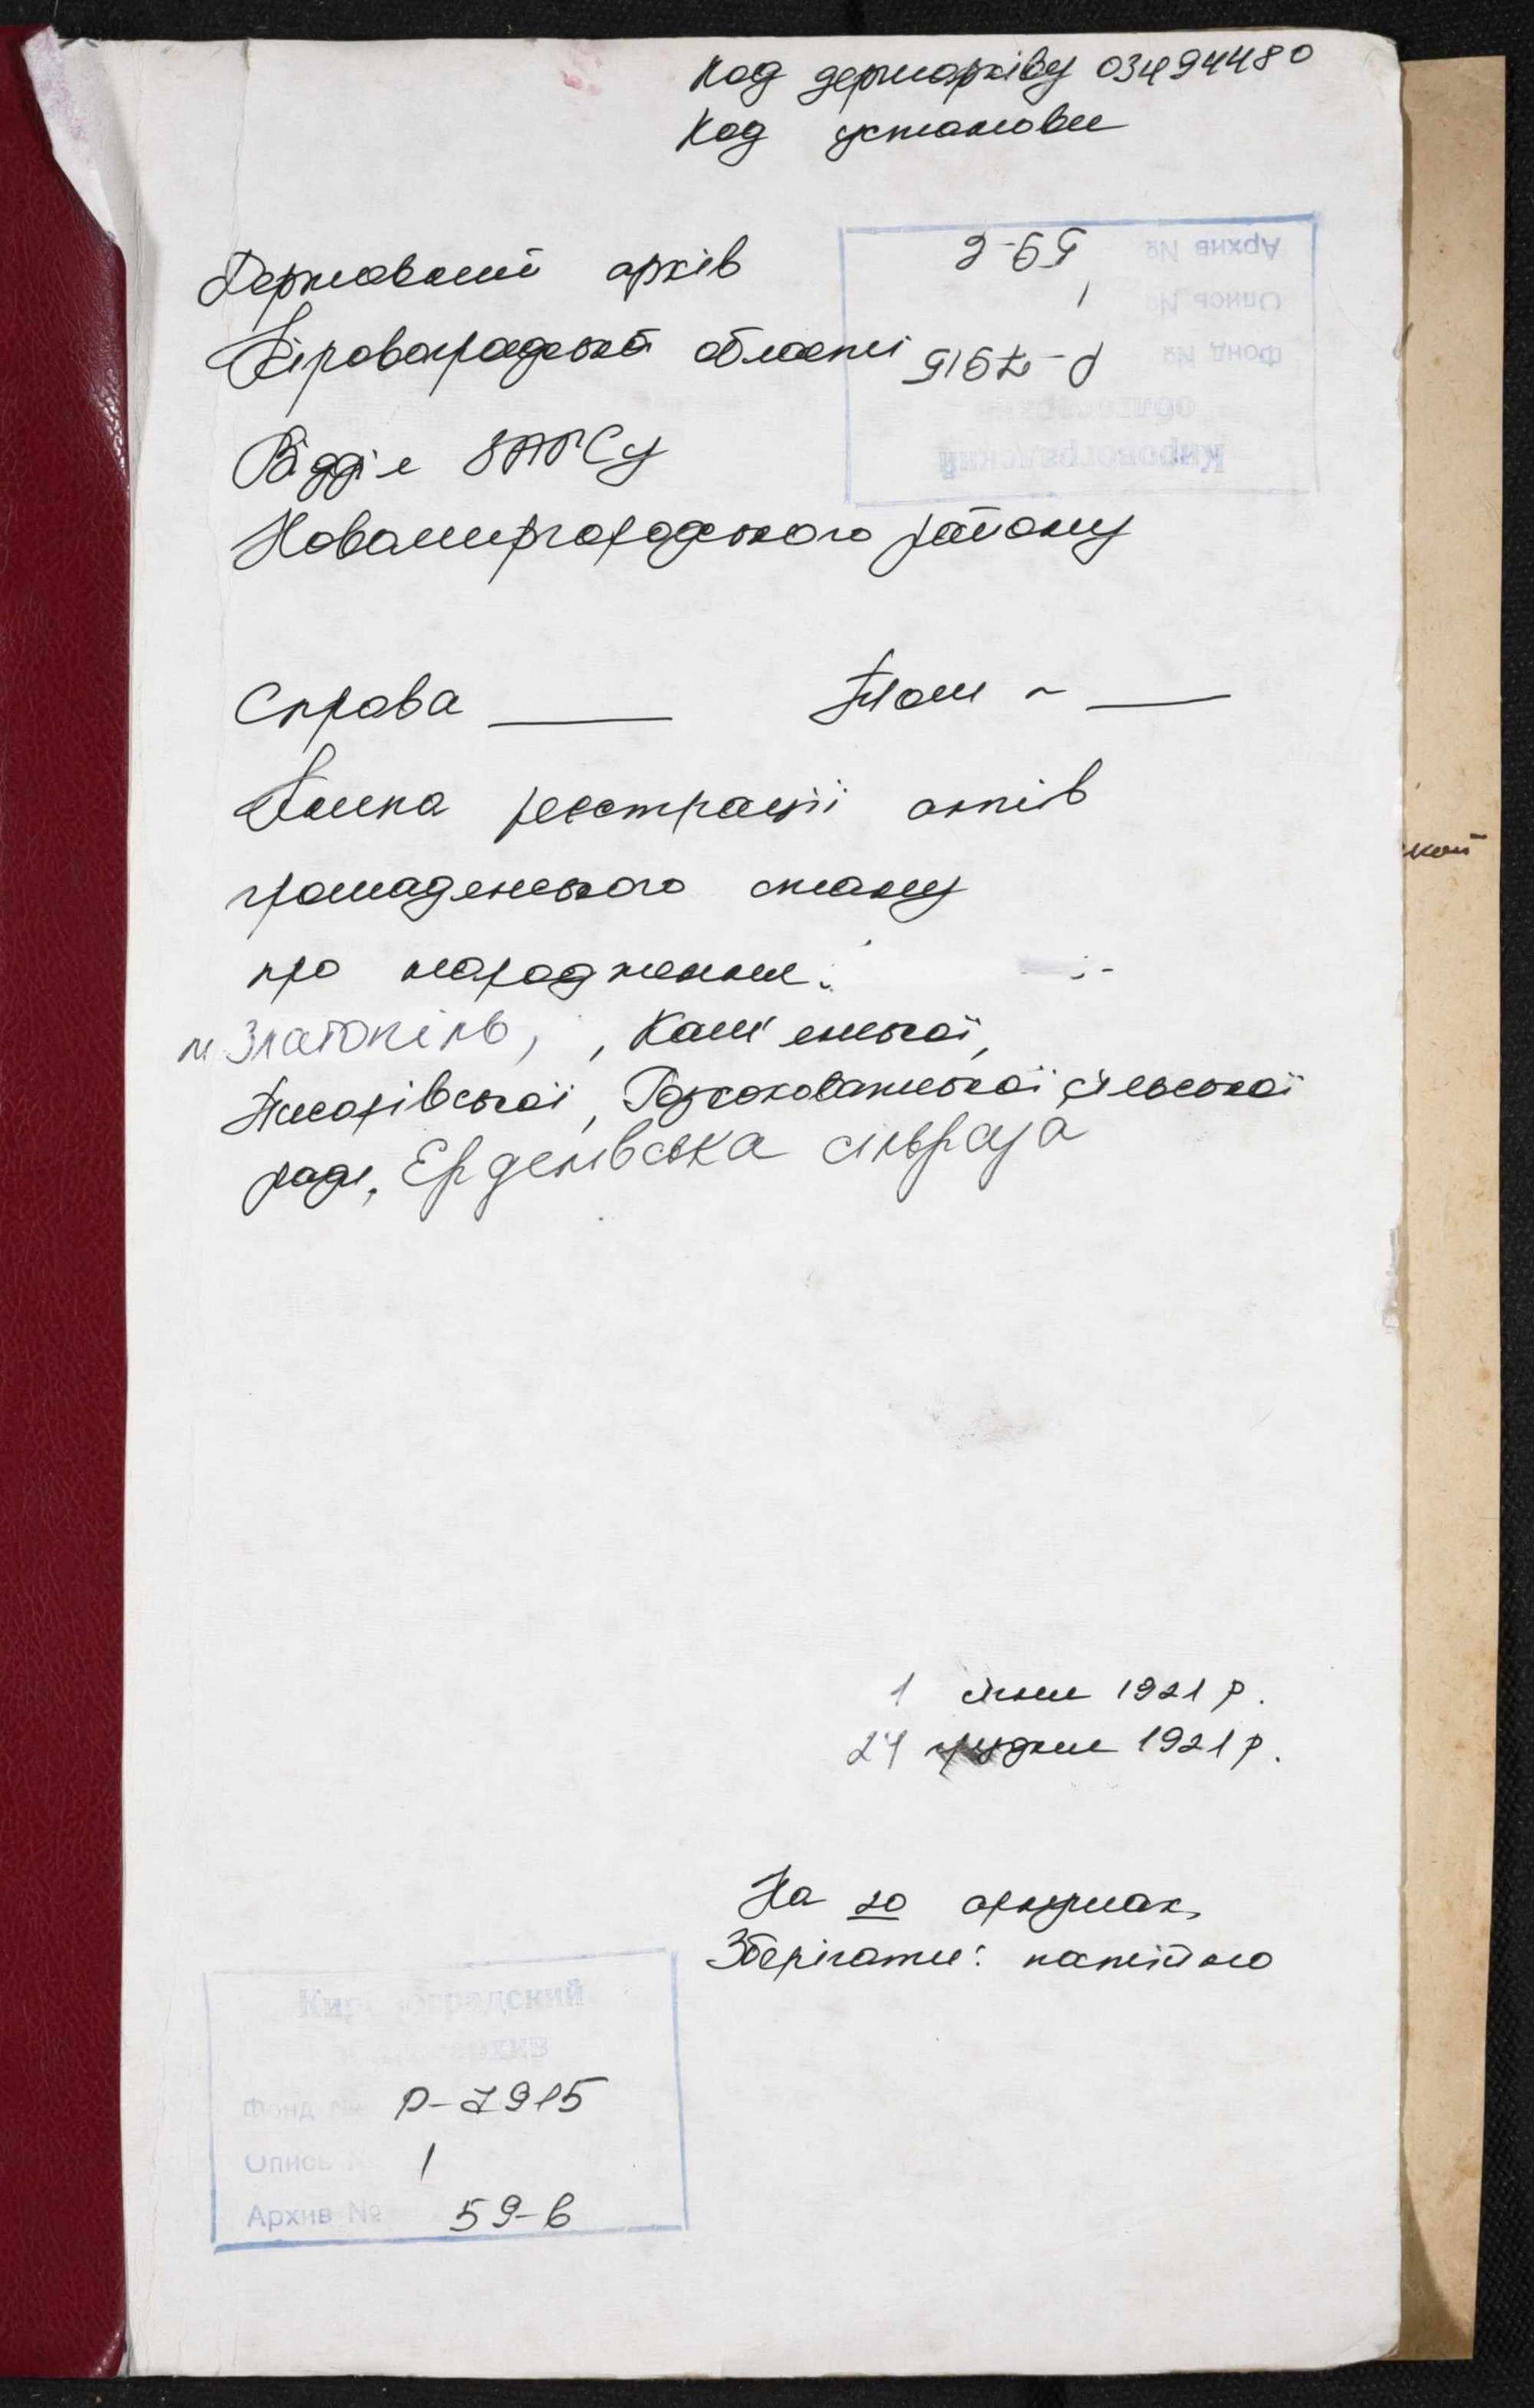 Код держархіву 03494480
Код установи
Державний архів
Кіровоградської області
Відділ ЗАГСу
Новомиргородського району
Архив № 59-в
Опись № 1
Фонд № Р-7915
облгосархив
Кировоградский
Справа ____ Том ~ ____
Книга реєстрації актів
громадянського стану
про народження:
м Златопіль, , Кам'янської,
Листопадівської сільської
ради, Ерделівська сільрада
1 січня 1921 р.
24 грудня 1921 р.
На 20 аркушах
Зберігати: постійно
Кировоградский
облгосархив
Фонд № Р-7915
Опись № 1
Архив № 59-в
кой